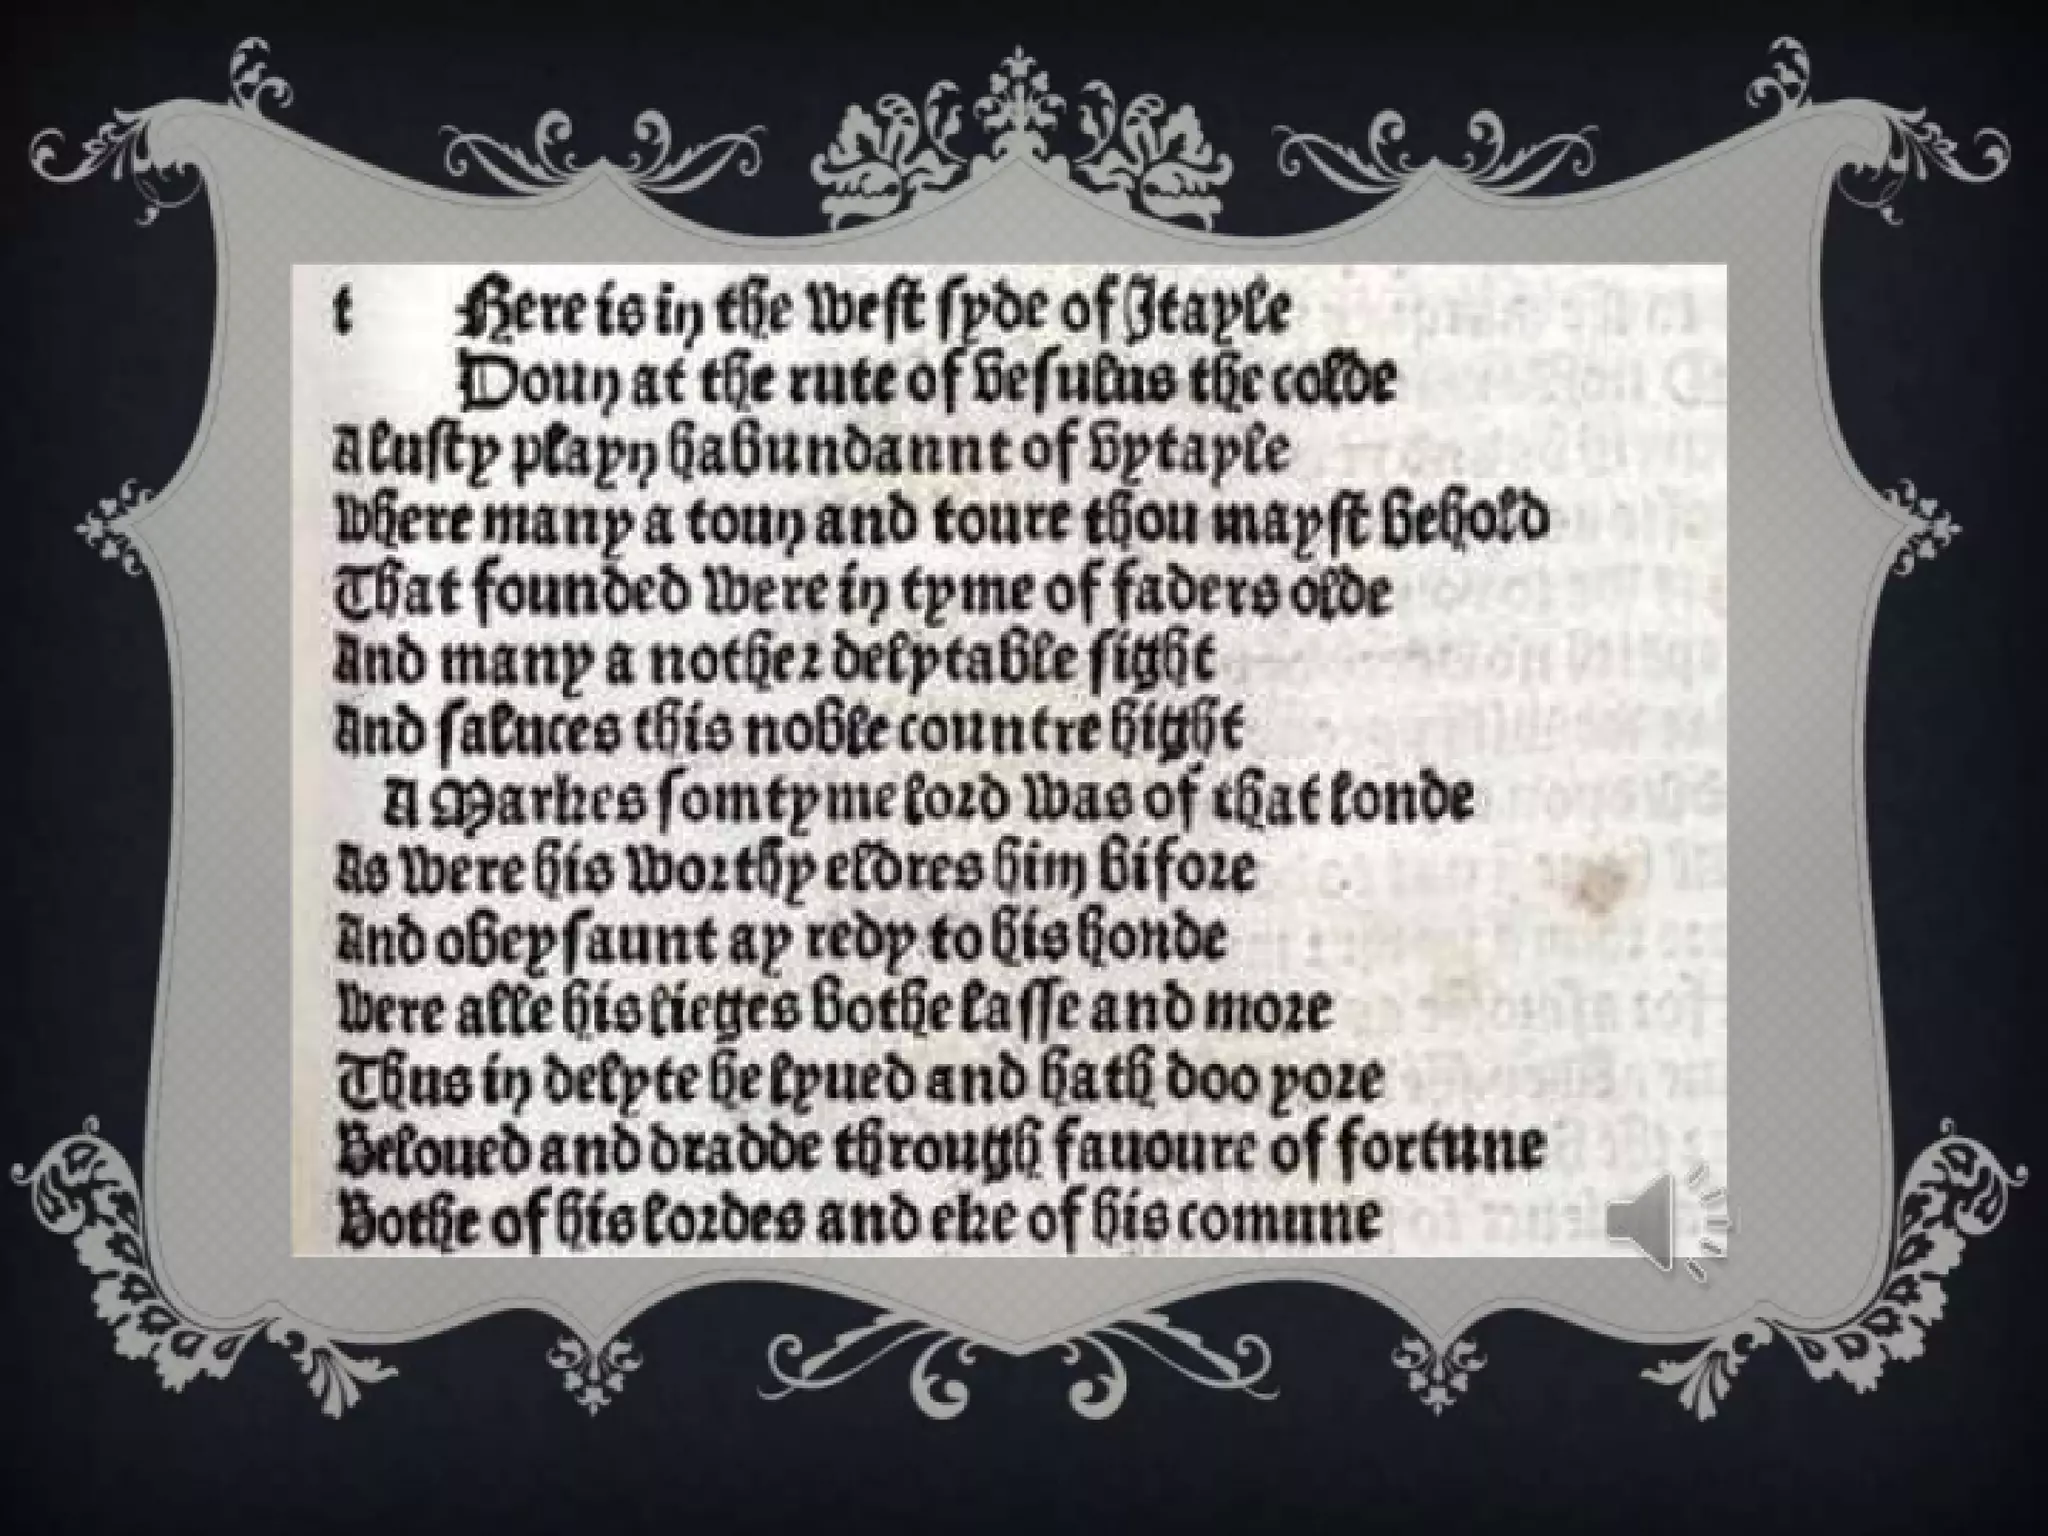 t Here is in the west syde of Itayle
Doun at the rute of vesulus the colde
A lusty playn habundannt of vytayle
Where many a toun and toure thou mayst behold
That founded were in tyme of faders olde
And many a nother delytable sight
And saluces this noble countre hight
A Markes somtyme lord was of that londe
As were his worthy eldres him bifore
And obeysaunt ay redy to his honde
Were alle his lieges bothe lasse and more
Thus in delyte he lyued and hath doo yore
Beloued and dradde through fauoure of fortune
Bothe of his lordes and eke of his comune